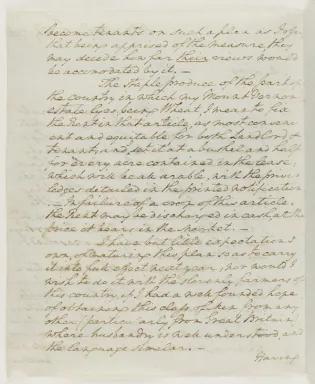 become tenants on such a plan as I offer
that being apprised of the measure, they
may decide how far their views would
be accomodated by it. –
The staple produce of the part of
the country in which my Mount Vernon
estate lyes being Wheat, I mean to fix
the Rent in that article, as most conveni-
ent and equitable for both Landlord &
tenant; and set it at a bushel and half
for every acre contained in the lease,
which will be all arable, with the privi-
ledges detailed in the printed notification
– In failure of a crop of this article,
the Rent may be discharged in cash, at the
price it bears in the Market. –
I have but little expectation
own, of maturing this plan so as to carry
it into full effect next year; nor would I
wish to do it with the slovenly farmers of
this country, if I had a well founded hope
of obtaining this class of men from any
other (particularly from Great Britain)
where husbandry is well understood, and
the language similar. –
Having